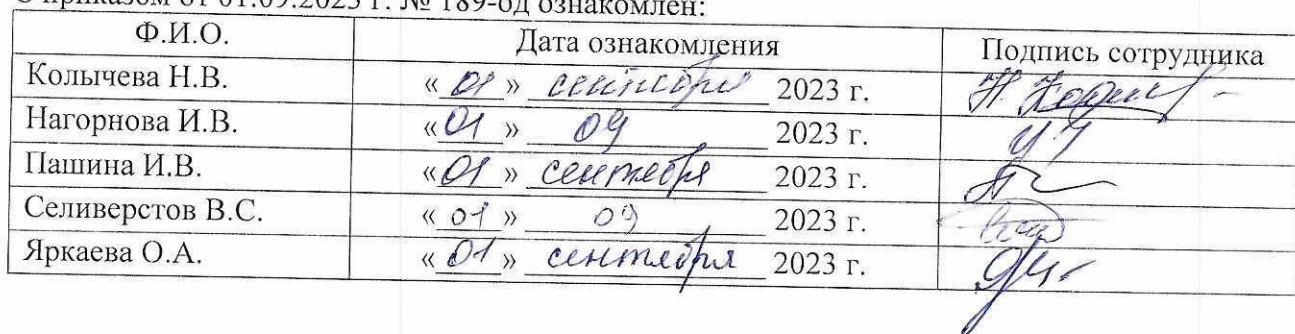 С приказом от 01.09.2023 г. № 189-од ознакомлен:
Ф.И.О. Дата ознакомления Подпись сотрудника
Колычева Н.В. «01» сентября 2023 г.
Нагорнова И.В. «01» 09 2023 г.
Пашина И.В. «01» сентября 2023 г.
Селиверстов В.С. «01» 09 2023 г.
Яркаева О.А. «01» сентября 2023 г.